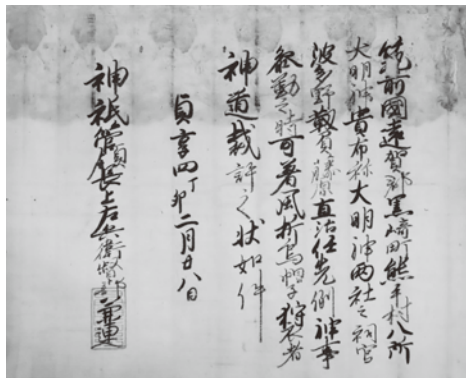 筑前國遠賀郡黒崎町熊手村八所
大明神貴布祢大明神両社之祠官
波多野靱負藤原直治任先例神事
参勤之時可着風折烏帽子狩衣者
神道裁許之状如件
貞享四丁卯二月廿八日
神祇管領長上左兵衛督卜部兼連